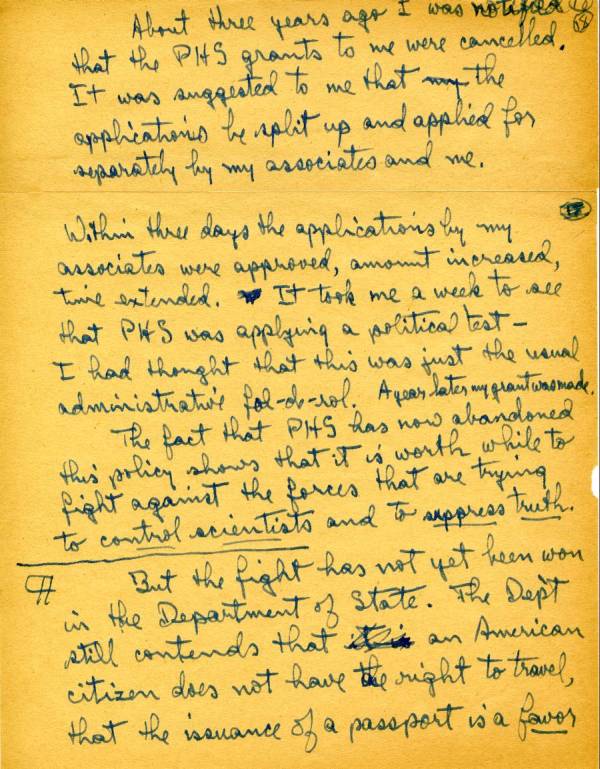 About three years ago I was notified
that the PHS grants to me were cancelled.
It was suggested to me that my the
applications be split up and applied for
separately by my associates and me.
Within three days the applications by my
associates were approved, amount increased,
time extended. It took me a week to see
that PHS was applying a political test –
I had thought that this was just the usual
administrative fol-de-rol. A year later my grant was made.
The fact that PHS has now abandoned
this policy shows that it is worth while to
fight against the forces that are trying
to control scientists and to suppress truth.
¶ But the fight has not yet been won
in the Department of State. The Dep't
still contends that it is an American
citizen does not have the right to travel,
that the issuance of a passport is a favor